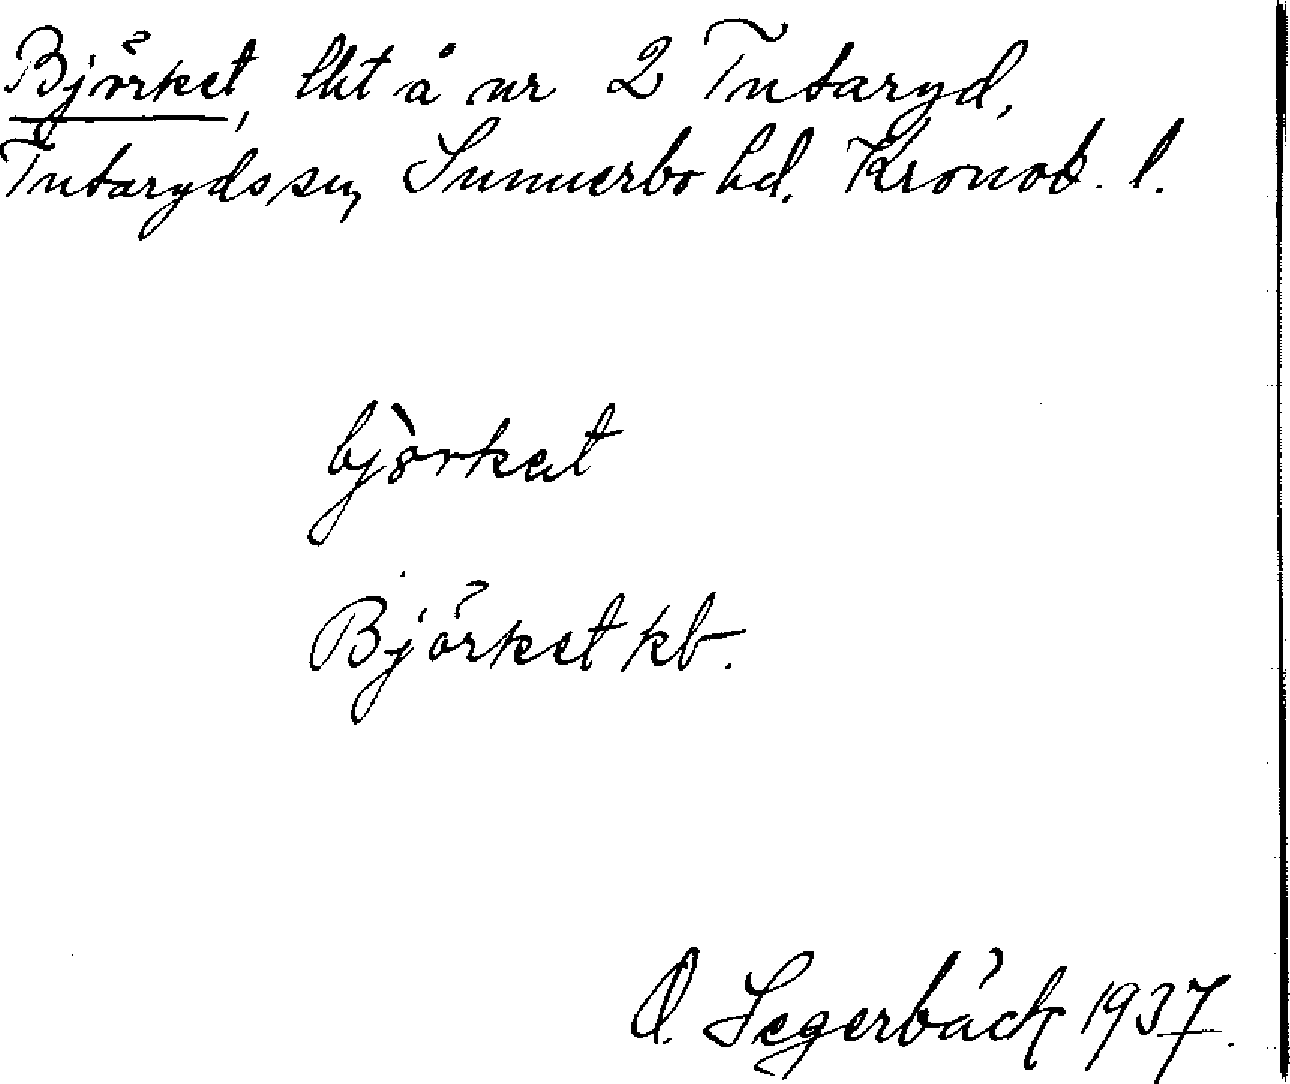 Björket, lht å nr 2 Tutaryd,
Tutaryds sn, Sunnerbo hd. Kronob. l.
bjòrkat
Björket kb.
O. Segerbäck 1937.